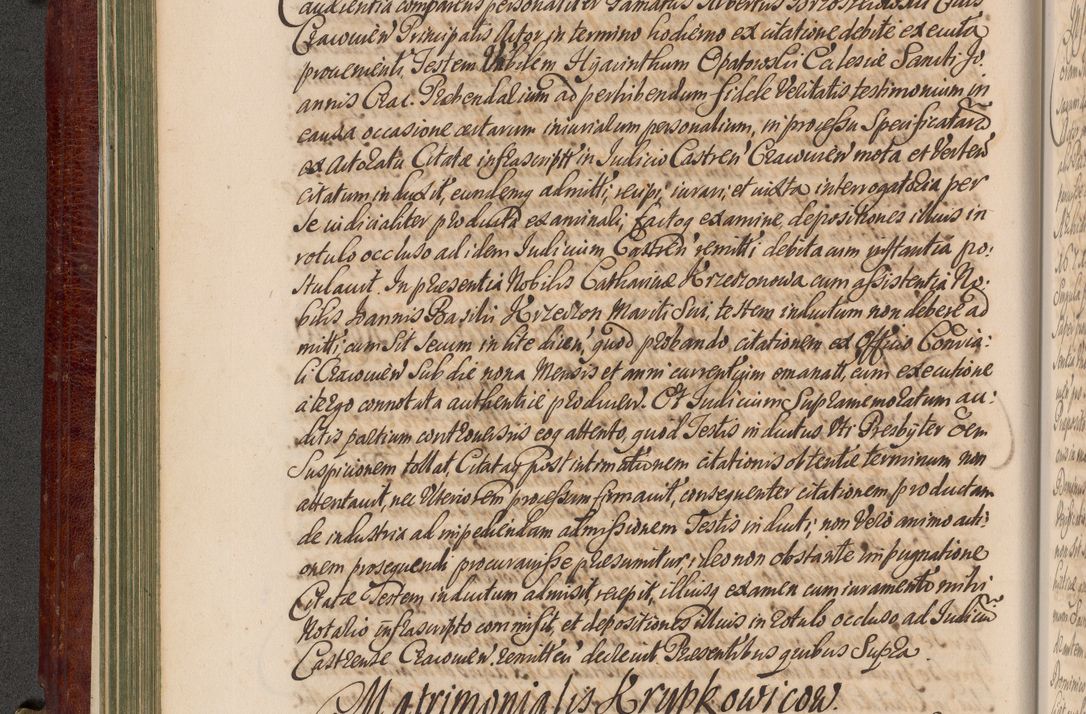 audientia comparens personaliter Famatus Albertus
Cracovien̄ Principalis Actor, in termino hodierno ex citatione debite executa
provenienti, Testem Nobilem Hyacinthum Opatowski Eclesiæ Sancti Jo:
annis Crac. Præbendarium ad perhibendum fidele Veritatis testimonium, in
causa occasione certarum iniuriarum personalium, in processu Specificatarū
ex Actoratu Citatæ infrascriptæ in Iudicio Castren̄ Cracovien̄ mota et Verten̄
citatum, induxit, eundemq admitti, recipi, iurari, et iuxta interrogatoria per
se iudicialiter producta examinari, factoq examine, depositiones illius in
rotulo occluso ad idem Iudicium Castren̄ remitti debita cum instantia po:
stulavit. In præsentia Nobilis Catharinæ Krzeczonowa cum assistentia No:
bilis Joannis Basilii Krzeczon Mariti Sui, testem inductum non debere ad
mitti, cum Sit Secum in lite dicen̄, quod probando, citationem ex Officio Consula:
ri Cracovien̄ Sub die nona Mensis et anni currentium emanatā, cum executione
à tergo connotata authentice producen̄. Et Iudicium Supramemoratum au:
ditis partium controversiis eoq attento, quod Testis inductus Uti Presbyter oēm
Suspicionem tollat, Citataq post intimationem citationis obtentæ terminum non
attentavit, nec Ulteriorem processum firmavit, consequenter citationem productam
de industria ad impediendam admissionem Testis inducti, non Vero animo acti:
onem prosequendi procuravisse præsumitur; ideo non obstante impugnatione
Citatæ Testem inductum admisit, recepit, illiusq examen cum iuramento mihi
Notario infrascripto commisit, et depositiones illius in rotulo occluso, ad Iudiciū
Castrense Cracovien̄ remitten̄ decrevit. Præsentibus quibus Supra.
Matrimonialis Krupkowicow.